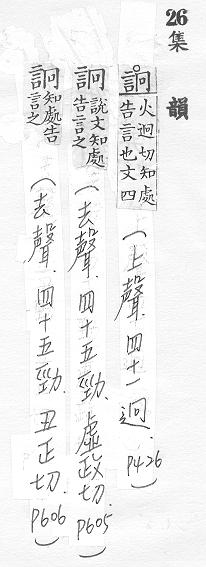 26集 韻
詗火迥切知處告言也文四(上聲.四十一迥.P426)
詗說文知處告言之(去聲.四十五勁.虛政切.P605)
詗知處告言之(去聲.四十五勁.丑正切.P606)